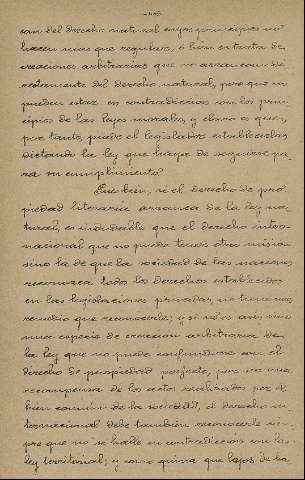 can del derecho natural cuyos principios no
hacen mas que regular, ó bien se trata de
creaciones arbitrarias que no arrancan di
rectamente del derecho natural, pero que no
pueden estar en contradiccion con los prin
cipios de las leyes morales, y claro es que,
por tanto, puede el legislador establecerlas
dictando la ley que haya de seguirse pa
ra su cumplimiento.
Pues bien, si el derecho de pro
piedad literaria arranca de la ley na
tural, es indudable que el derecho inter
nacional que no puede tener otra mision
sino la de que la sociedad de las naciones
reconozca todos los derechos establecidos
en las legislaciones privadas, no tiene mas
remedio que reconocerle; y si no es asi, sino
una especie de creacion arbitraria de
la ley que no puede confundirse con el
derecho de propiedad perfecto, por ser una
recompensa de los actos realizados por el
bien comun de la sociedad, el derecho in
ternacional debe tambien reconocerle siem
pre que no se halle en contradiccion con la
ley territorial; y como quiera que lejos de ha